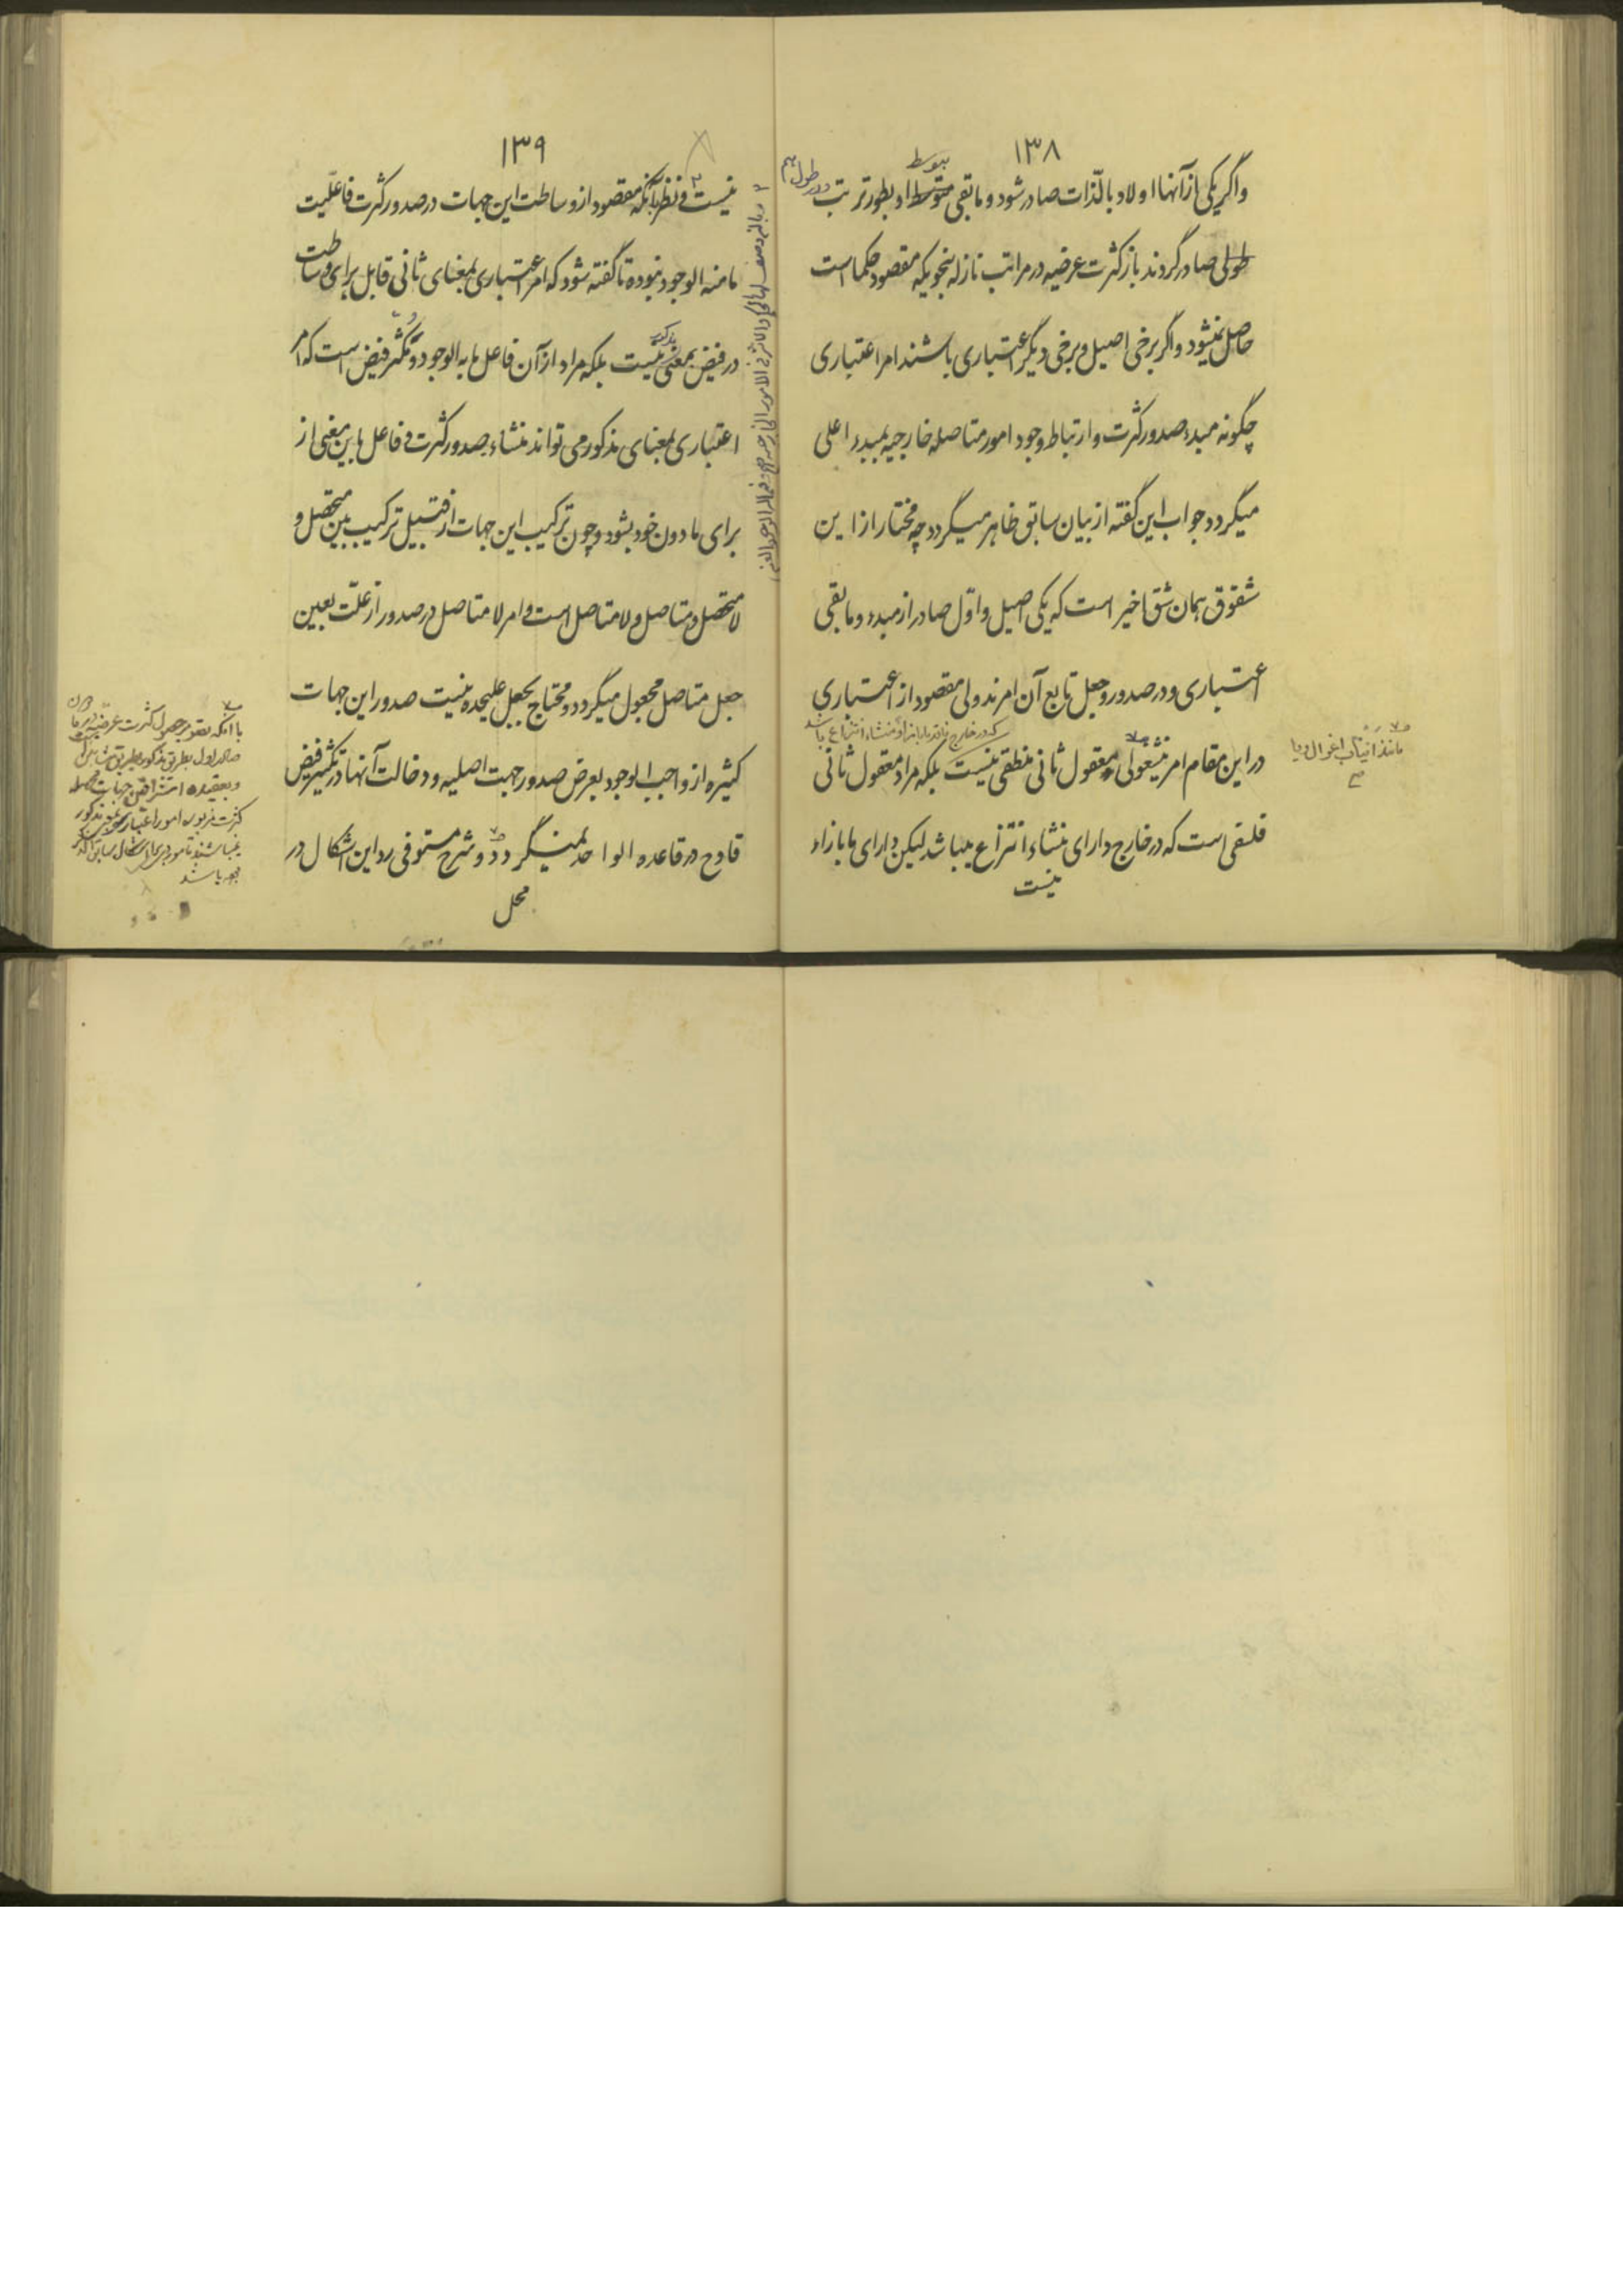 ۱۳۸
واگر یکی از آنها اولا و بالذات صادر شود و مابقی بتوسط او بطور ترتب در طول هم
طولی صادر گردند باز کثرت عرضیه در مراتب نازله بنحویکه مقصود حکما است
حاصل نمیشود واگر برخی اصیل و برخی دیگر اعتباری باشند امر اعتباری
چگونه مبدء صدور کثرت وارتباط وجود امور متاصله خارجیه بمبدء اعلی
میگردد جواب این گفته از بیان سابق ظاهر میگردد چه مختار از این
شقوق همان شق اخیر است که یکی اصیل واول صادر از مبدء و مابقی
اعتباری و در صدور وجعل تابع آن امرند ولی مقصود از اعتباری
که در خارج فاقد مابازاء و منشاء انتزاع باشد
در این مقام امر معقول ثانی منطقی نیست بلکه مراد معقول ثانی
فلسفی است که در خارج دارای منشاء انتزاع میباشد لیکن دارای مابازاء
نیست
مانند انیاب اغوال ویا
۱۳۹
نیست و نظر بآنکه مقصود از وساطت این جهات در صدور کثرت فاعلیت
مامنه الوجود نبوده تا گفته شود که امر اعتباری بمعنای ثانی قابل برای وساطت
در فیض بمعنی مذکور نیست بلکه مراد از آن فاعل مابه الوجود و مکثر فیض است که امر
اعتباری بمعنای مذکور می تواند منشاء صدور کثرت و فاعل باین معنی از
برای مادون خود بشود و چون ترکیب این جهات از قبیل ترکیب بین متحصل و
لامتحصل و متاصل و لامتاصل است و امر لامتاصل در صدور از علت بعین
جعل متاصل مجعول میگردد و محتاج بجعل علیحده نیست صدور این جهات
کثیره از واجب الوجود بعرض صدور جهت اصلیه و دخالت آنها در تکثیر فیض
قادح در قاعده الواحد نمیگردد و شرح مستوفی رد این اشکال در
محل
با آنکه بصدور جهت کثرت عرضیه
صادر اول بطریق مذکور بطریق
وبعقیده اشراقین جهات
کثرت مزبوره امور اعتباری بمعنی مذکور
نمیباشند تا مورد برای اشکال سابق الذکر
باشند